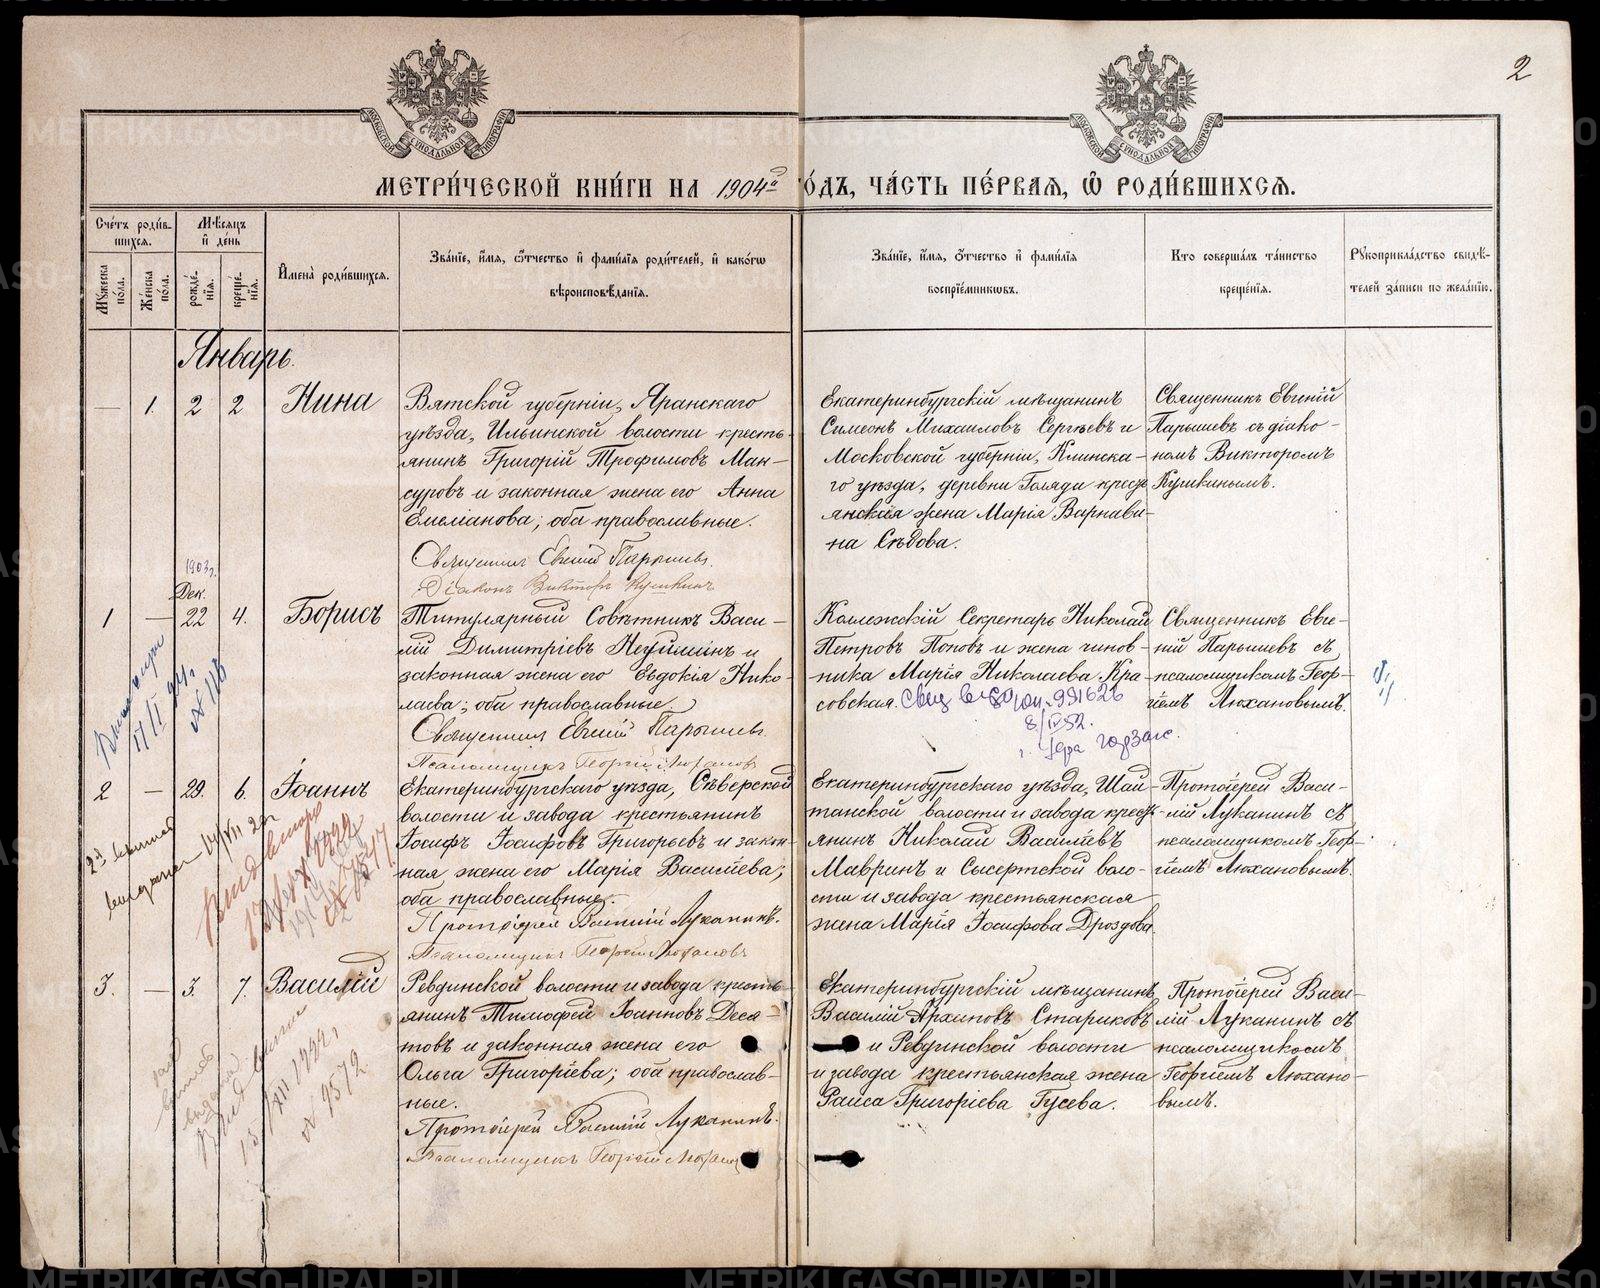 2
МЕТРИ́ЧЕСКОЙ КНИ́ГИ НА 1904й ГО́ДЪ, ЧА́СТЬ ПЕ́РВАЯ, Ѿ РОДИ́ВШИХСЯ.
Сче́тъ роди́в-
шихся.
Мѣ́сяцъ
и де́нь
Му́жеска
по́ла.
Же́нска
по́ла.
рожде́-
нія.
креще́-
нія.
Имена̀ роди́вшихся.
Зва́ніе, и́мя, ѻ́тчество и фами́лія роди́телей, и како́гѡ
вѣроисповѣ́данія.
Зва́ніе, и́мя, ѻ́тчество и фами́лія
воспріе́мникѡвъ.
Кто соверша́лъ та́инство
креще́нія.
Рукоприкла́дство свидѣ́-
телей за́писи по жела́нію.
Январь.
— 1. 2 2 Нина
Вятской губерніи, Яранскаго
уѣзда, Ильинской волости кресть-
янинъ Григорій Трофимовъ Ман-
суровъ и законная жена его Анна
Емеліанова; оба православные.
Священникъ Евгеній Парышевъ.
Діаконъ Викторъ Кушкинъ
Екатеринбургскій мѣщанинъ
Симеонъ Михаиловъ Сергѣевъ и
Московской губерніи, Клинска-
го уѣзда, деревни Голяди крест-
янская жена Марія Варнави-
на Сѣдова.
Священникъ Евгеній
Парышевъ съ діако-
номъ Викторомъ
Кушкинымъ.
1903 г.
Дек.
1 — 22 4. Борисъ
Титулярный Совѣтникъ Васи-
лій Димитріевъ Неуйминъ и
законная жена его Евдокія Нико-
лаева; оба православные.
Священникъ Евгеній Парышевъ.
Псаломщикъ Георгій Люхановъ
Коллежскій Секретарь Николай
Петровъ Поповъ и жена чинов-
ника Марія Николаева Кра-
совская.
991626
8/IV 52.
г. Уфа
Священникъ Евге-
ній Парышевъ съ
псаломщикомъ Геор-
гіемъ Люхановымъ.
2 — 29. 6. Іоаннъ
Екатеринбургскаго уѣзда, Сѣверской
волости и завода крестьянинъ
Іосифъ Іосифовъ Григорьевъ и закон-
ная жена его Марія Василіева;
оба православные.
Протоіерей Василій Луканинъ.
Псаломщикъ Георгій Люхановъ
Екатеринбургскаго уѣзда, Шай-
танской волости и завода крест-
янинъ Николай Василіевъ
Мавринъ и Сысертской воло-
сти и завода крестьянская
жена Марія Іосифова Дроздова.
Протоіерей Васи-
лій Луканинъ съ
псаломщикомъ Геор-
гіемъ Люхановымъ.
3. — 3. 7. Василій
Ревдинской волости и завода кресть-
янинъ Тимофей Іоанновъ Деся-
товъ и законная жена его
Ольга Григоріева; оба православ-
ные.
Протоіерей Василій Луканинъ.
Псаломщикъ Георгій Люханов
Екатеринбургскій мѣщанинъ
Василій Архиповъ Стариковъ
и Ревдинской волости
и завода крестьянская жена
Раиса Григоріева Гусева.
Протоіерей Васи-
лій Луканинъ съ
псаломщикомъ
Георгіемъ Люхано-
вымъ.
METRIKI.GASO-URAL.RU